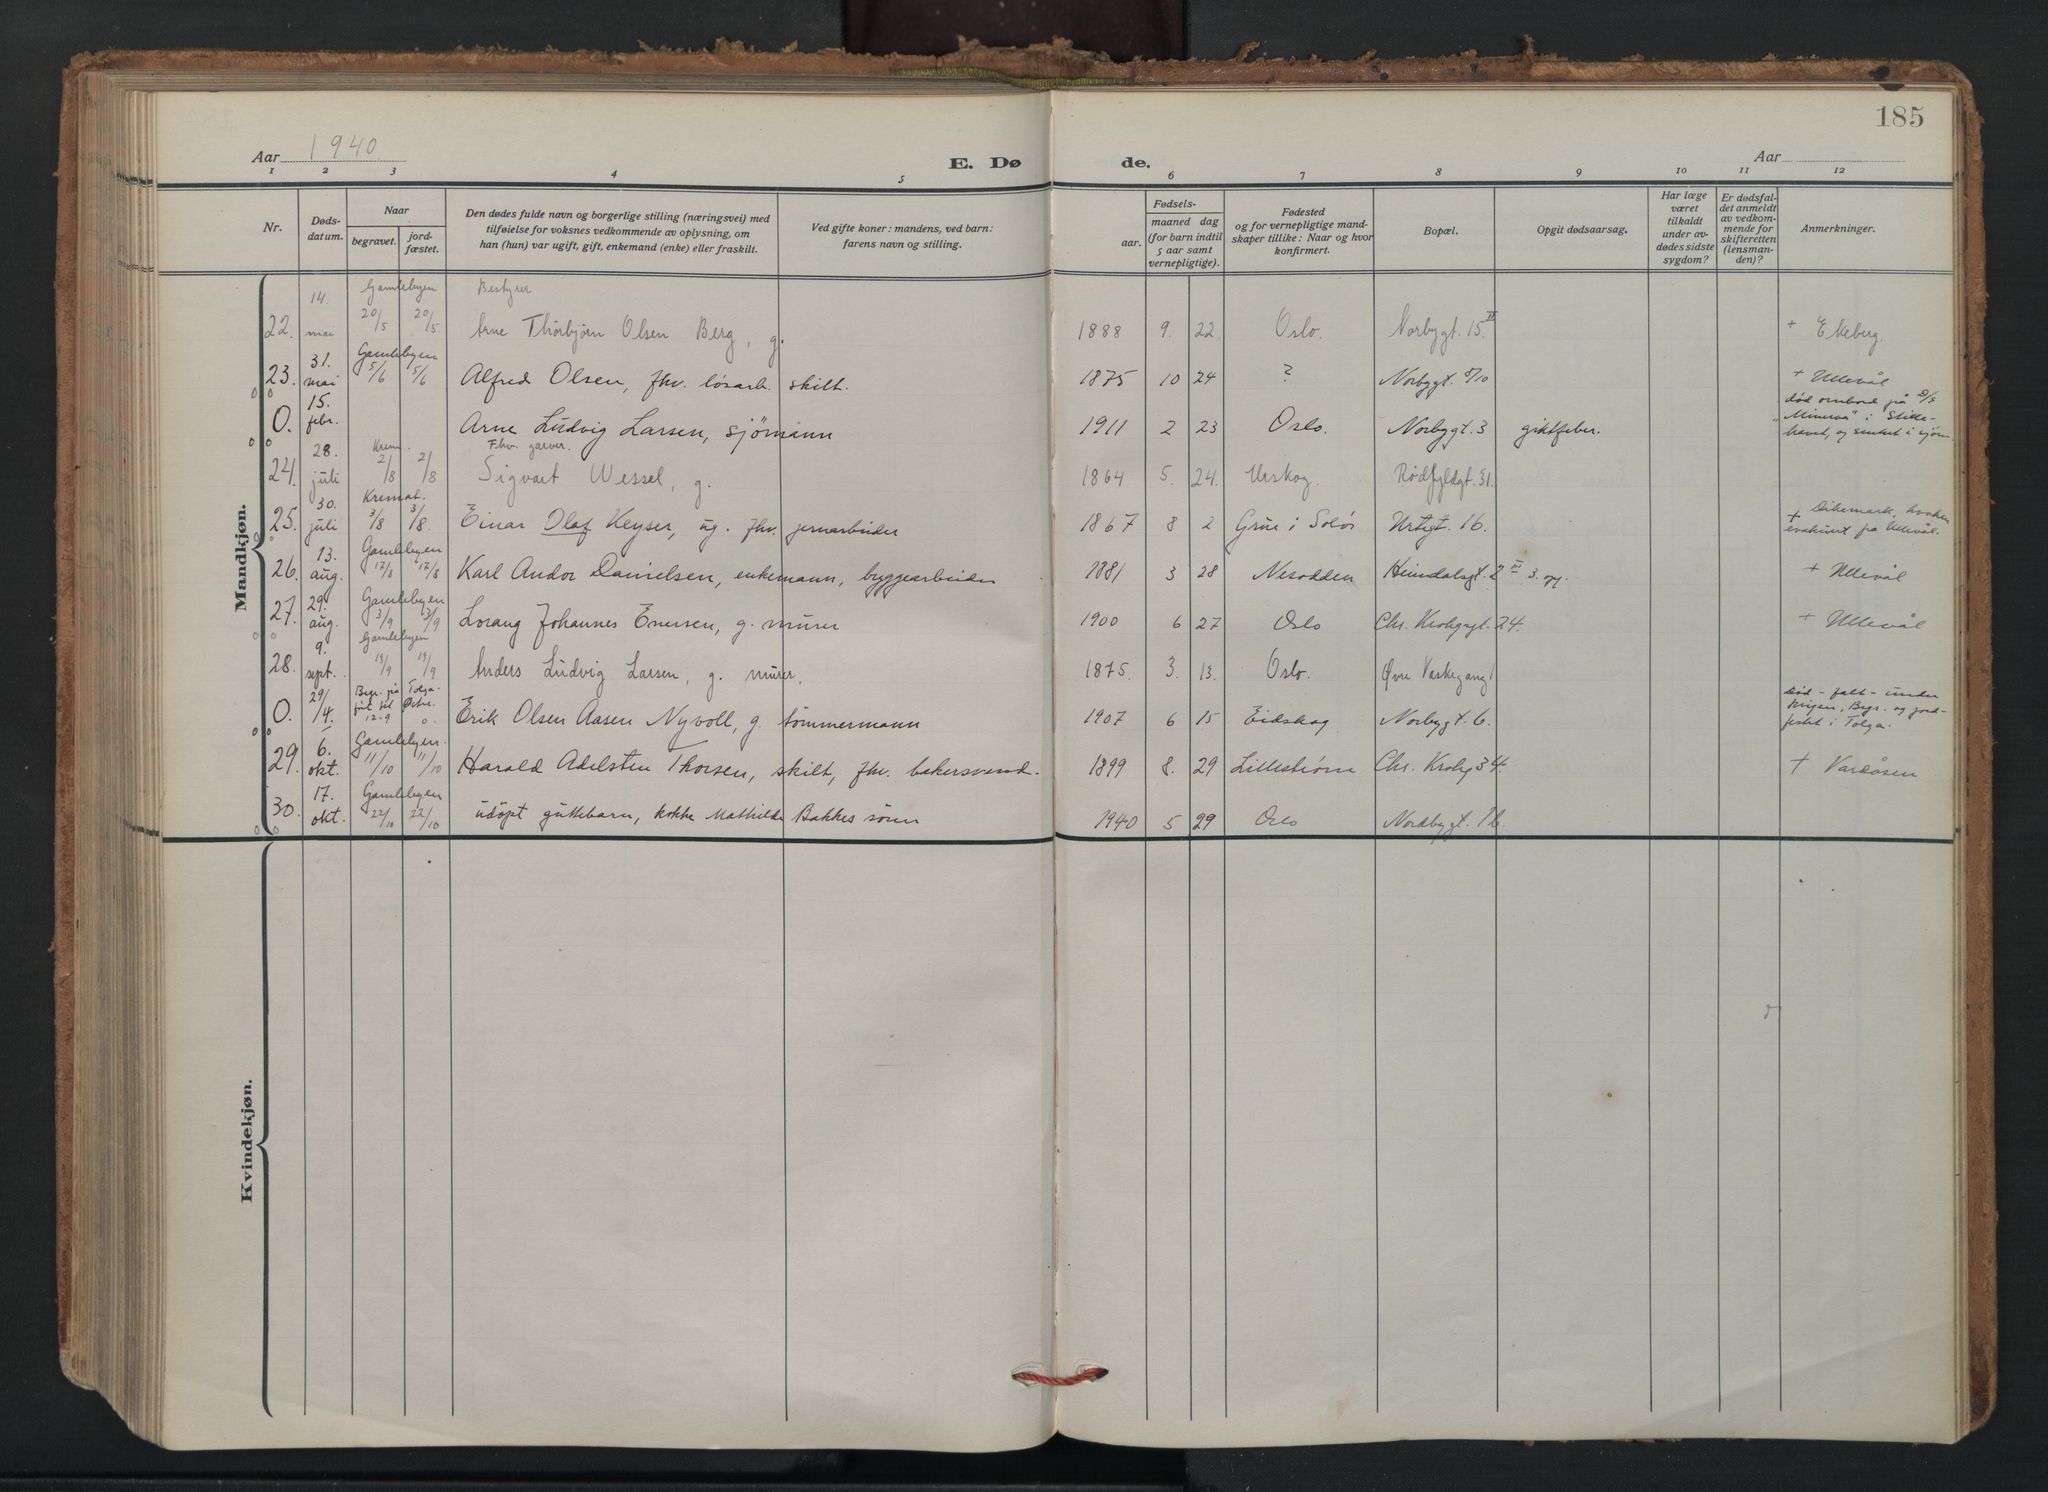 185
Aar 1940
E. Dø de.
Aar
1 2 3 4 5 6 7 8 9 10 11 12
Nr.
Døds-
datum.
Naar
begravet.
jord-
fæstet.
Den dødes fulde navn og borgerlige stilling (næringsvei) med
tilføielse for voksnes vedkommende av oplysning, om
han (hun) var ugift, gift, enkemand (enke) eller fraskilt.
Ved gifte koner: mandens, ved barn:
farens navn og stilling.
Fødsels-
aar.
maaned dag
(for barn indtil
5 aar samt
vernepligtige).
Fødested
og for vernepligtige mand-
skaper tillike: Naar og hvor
konfirmert.
Bopæl.
Opgit dødsaarsag.
Har læge
været
tilkaldt
under av-
dødes sidste
sygdom?
Er dødsfal-
det anmeldt
av vedkom-
mende for
skifteretten
(lensman-
den)?
Anmerkninger.
Mandkjøn.
14. Gamlebyen Bestyrer
22. mai 20/5 20/5 Arne Thorbjørn Olsen Berg, g. 1888 9. 22. Oslo. Norbygt. 15 II + Ekeberg.
31. Gamlebyen
23. mai 5/6 5/6 Alfred Olsen, fhv. løsarb. skilt. 1875 10 24 ? Norbygt. 8/10 + Ullevål
15. død ombord på D/S
0. febr. Arne Ludvig Larsen, sjømann 1911 2 23 Oslo. Norbygt. 3 giktfeber. "Minerva" i Stille-
havet, og senket i sjøen.
28. Krem. Fhv. garver.
24. juli 2/8 2/8 Sigvart Wessel, g. 1864 5. 24. Urskog. Rødfyldgt. 31.
30. Kremat.
25. juli 3/8 3/8. Einar Olaf Keyser, ug. fhv. jernarbeider 1867 8 2 Grue i Solør Urtegt. 16. + Dikemark, hvorhen
evakuert fra Ullevål.
13. Gamlebyen
26. aug. 17/8 17/8 Karl Andor Danielsen, enkemann, byggearbeider 1881 3 28 Nesodden Heimdalsgt. 2 III 3. opg. + Ullevål
29. Gamlebyen
27. aug. 3/9 3/9 Lorang Johannes Enersen, g. murer 1900 6 27 Oslo Chr. Krohgsgt. 24. + Ullevål
9. Gamlebyen
28. sept. 13/9 13/9 Anders Ludvig Larsen, g. murer. 1875. 3. 13. Oslo. Øvre Vaskegang 1
29/4. Begr. på Tolga. Død - falt - under
0. 12-9 Erik Olsen Aasen Nyvoll, g. tømmermann 1907 6 15 Eidskog Norbygt. 6. krigen, Begr. og jord-
festet i Tolga.
6. Gamlebyen.
29. okt. 11/10 11/10 Harald Adelsten Thorsen, skilt, fhv. bakersvend. 1899 8. 29 Lillestrøm Chr. Krohg 34. + Vardåsen
17. Gamlebyen
30. okt. 22/10 22/10 udöpt guttebarn, kokke Mathilde Bakkes sønn 1940 5 29 Oslo Nordbygt. 16.
Kvindekjøn.